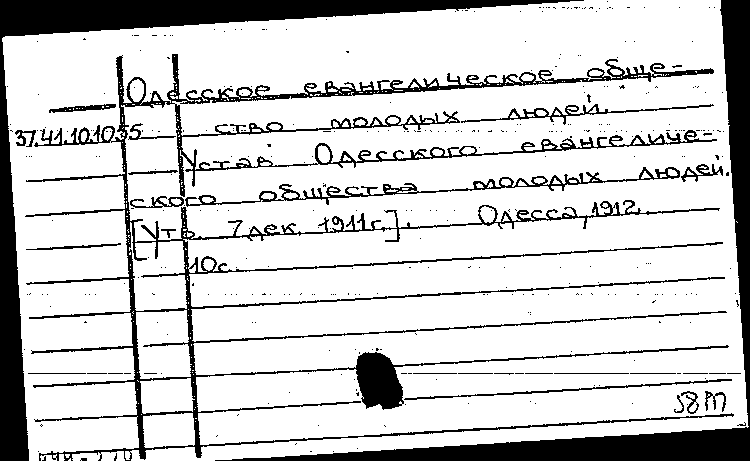 Одесское евангелическое обще-
37.41.10.1035 ство молодых людей.
Устав Одесского евангеличе-
ского общества молодых людей.
[Утв. 7 дек. 1911 г.]. Одесса, 1912.
10с.
58М